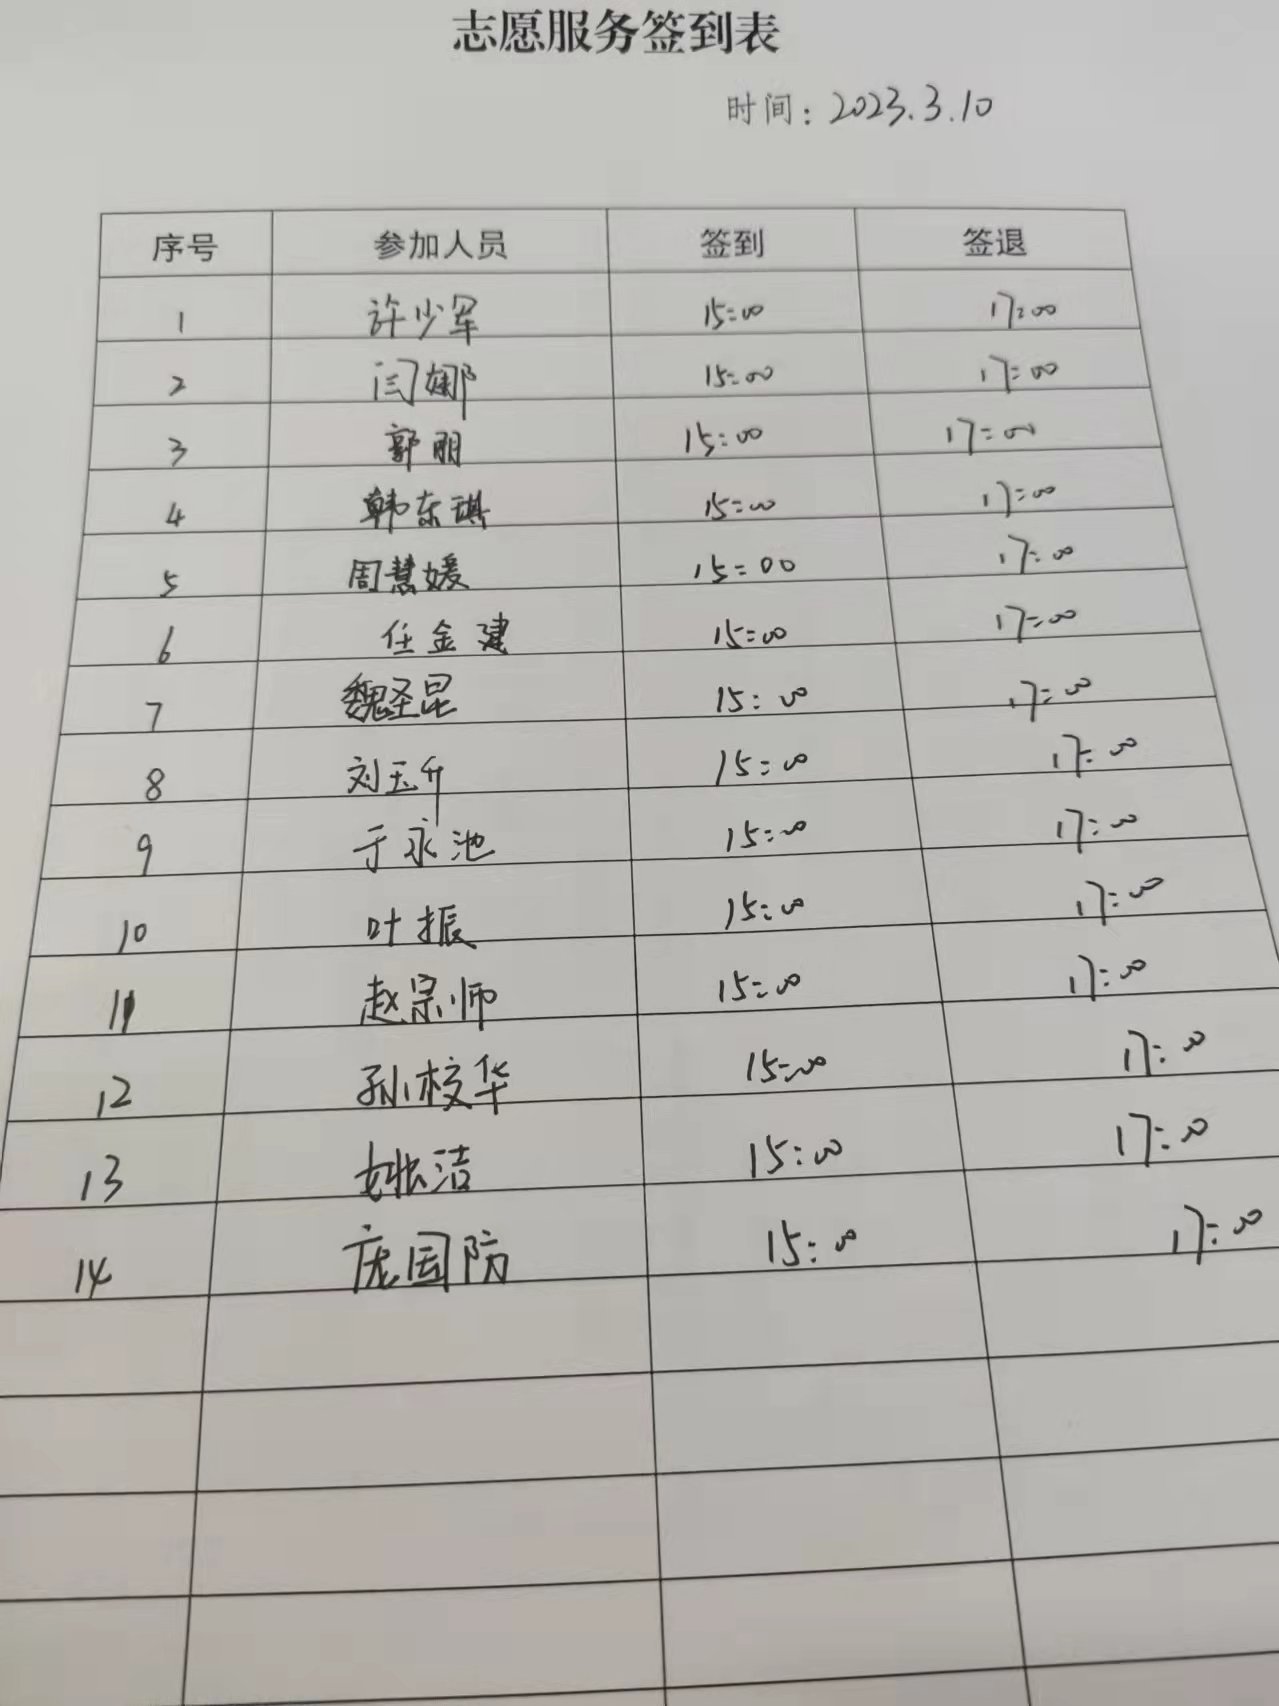 志愿服务签到表
时间：2023.3.10
序号 参加人员 签到 签退
1 许少军 15:00 17:00
2 闫娜 15:00 17:00
3 郭朋 15:00 17:00
4 韩东琪 15:00 17:00
5 周慧媛 15:00 17:00
6 任金建 15:00 17:00
7 魏圣昆 15:00 17:00
8 刘玉升 15:00 17:00
9 于永池 15:00 17:00
10 叶振 15:00 17:00
11 赵宗师 15:00 17:00
12 孙校华 15:00 17:00
13 姚洁 15:00 17:00
14 庞国防 15:00 17:00